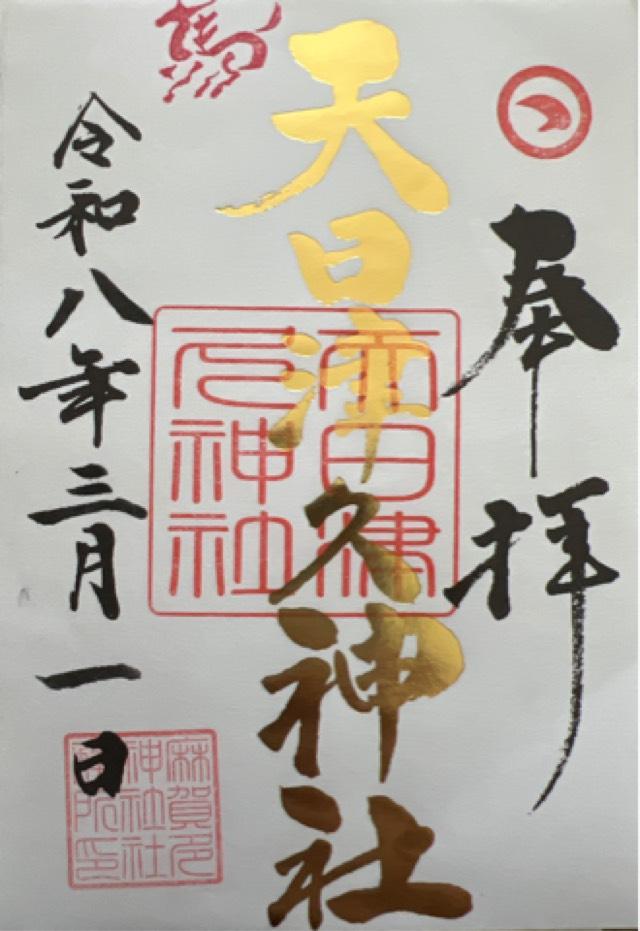 奉拝
天日津久神社
天日津
久神社
馬
令和八年三月一日
麻賀多
神社社
務所印